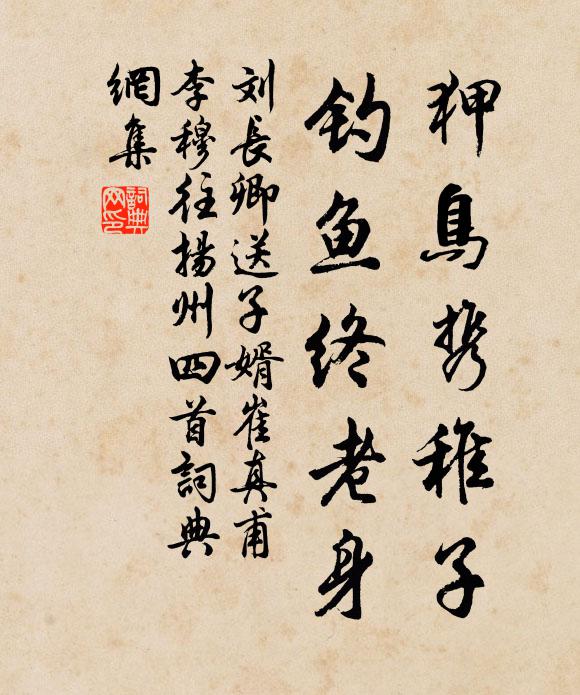 狎鳥携稚子
钓鱼终老身
刘長卿送子婿崔真甫
李穆往揚州四首詞典
網集
詞典
网印